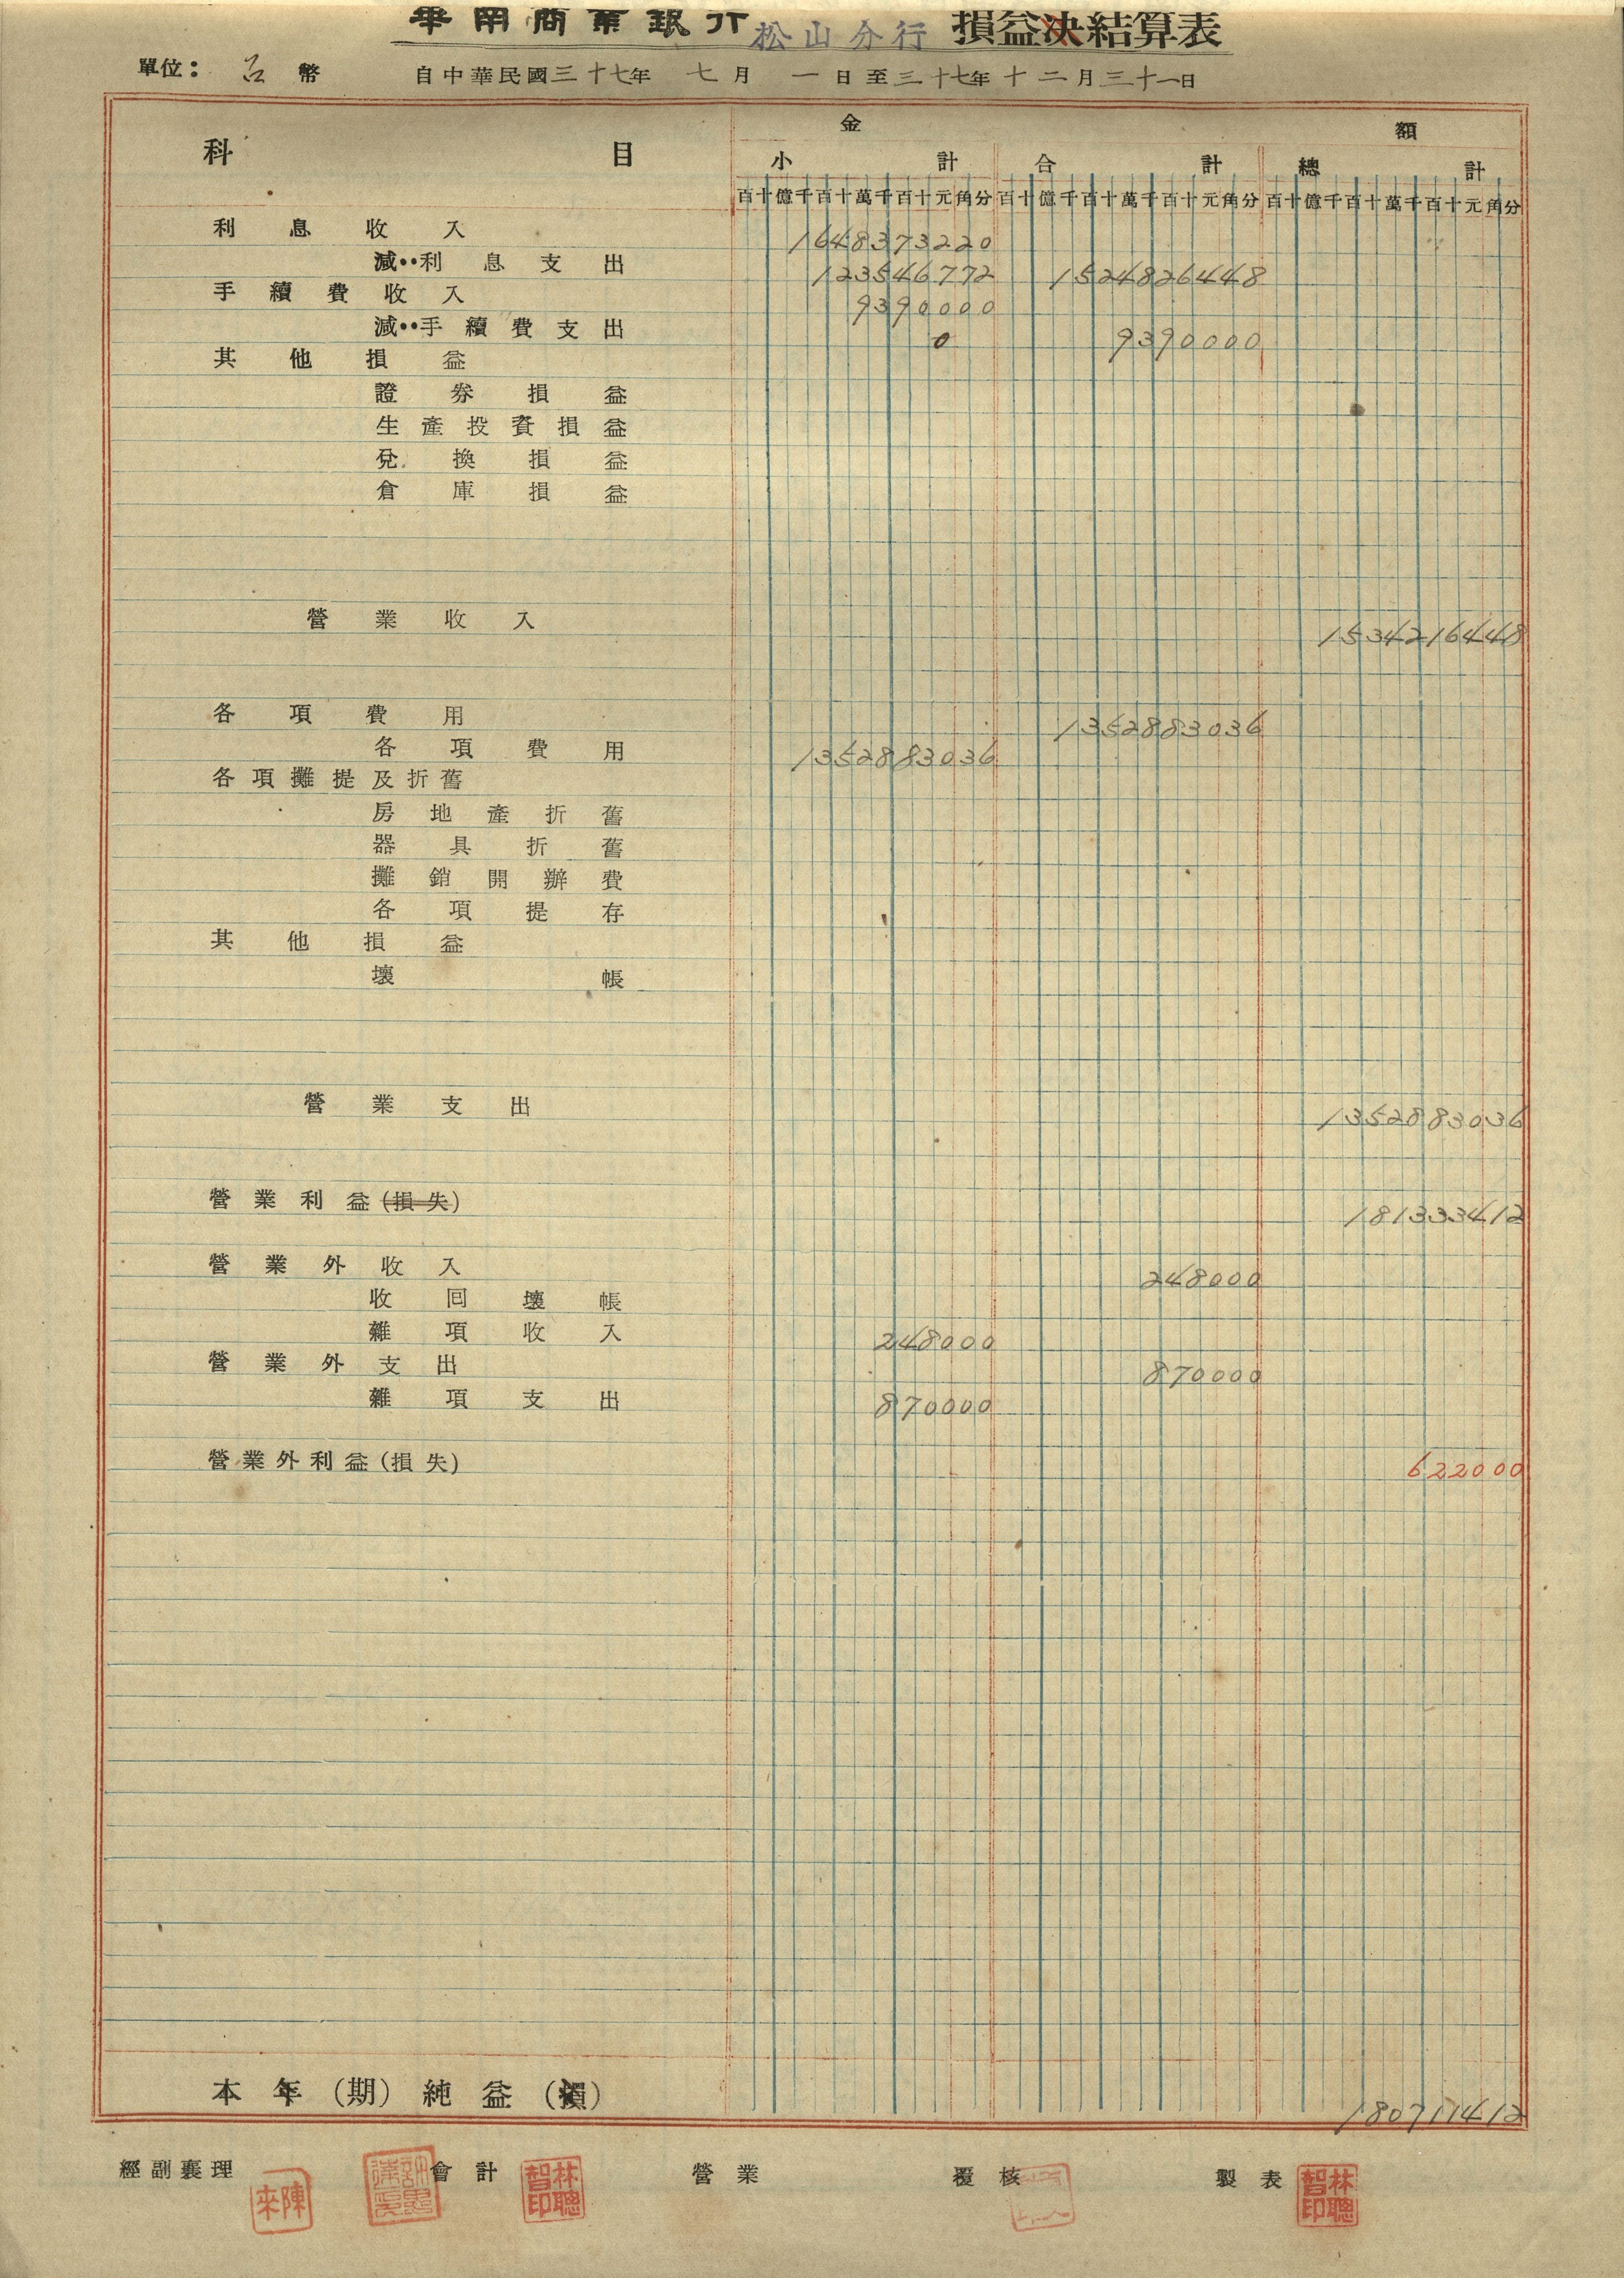 華南商業銀行 松山分行 損益決結算表
單位： 台幣 自中華民國三十七年 七月 一日至三十七年十二月三十一日
科 目 金 額
小 計 合 計 總 計
百十億千百十萬千百十元角分 百十億千百十萬千百十元角分 百十億千百十萬千百十元角分
利息收入 1648373220
減··利息支出 123546772 1524826448
手續費收入 9390000
減··手續費支出 0 9390000
其他損益
證券損益
生產投資損益
兌換損益
倉庫損益
營業收入 1534216448
各項費用 1352883036
各項費用 1352883036
各項攤提及折舊
房地產折舊
器具折舊
攤銷開辦費
各項提存
其他損益
壞帳
營業支出 1352883036
營業利益(損失) 181333412
營業外收入 248000
收回壞帳
雜項收入 248000
營業外支出 870000
雜項支出 870000
營業外利益(損失) 622000
本年(期)純益(損) 180711412
經副襄理 會計 營業 覆核 製表
陳來 林聰智印 林聰智印